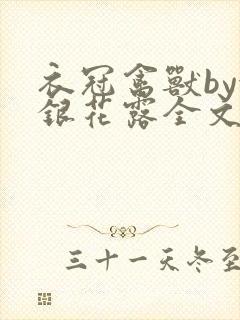 衣冠禽獸by
銀花露全文
三十一天冬至